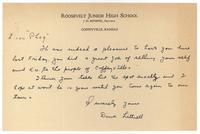 ROOSEVELT JUNIOR HIGH SCHOOL
COFFEYVILLE, KANSAS
Dear "Phog"
It was indeed a pleasure to have you here
last Friday. You did a great job of selling your self
and K.U. to the people of Coffeyville.
I know your talks hit the spot locally and I
hope it wont be so long until you come again to see
Sincerely yours